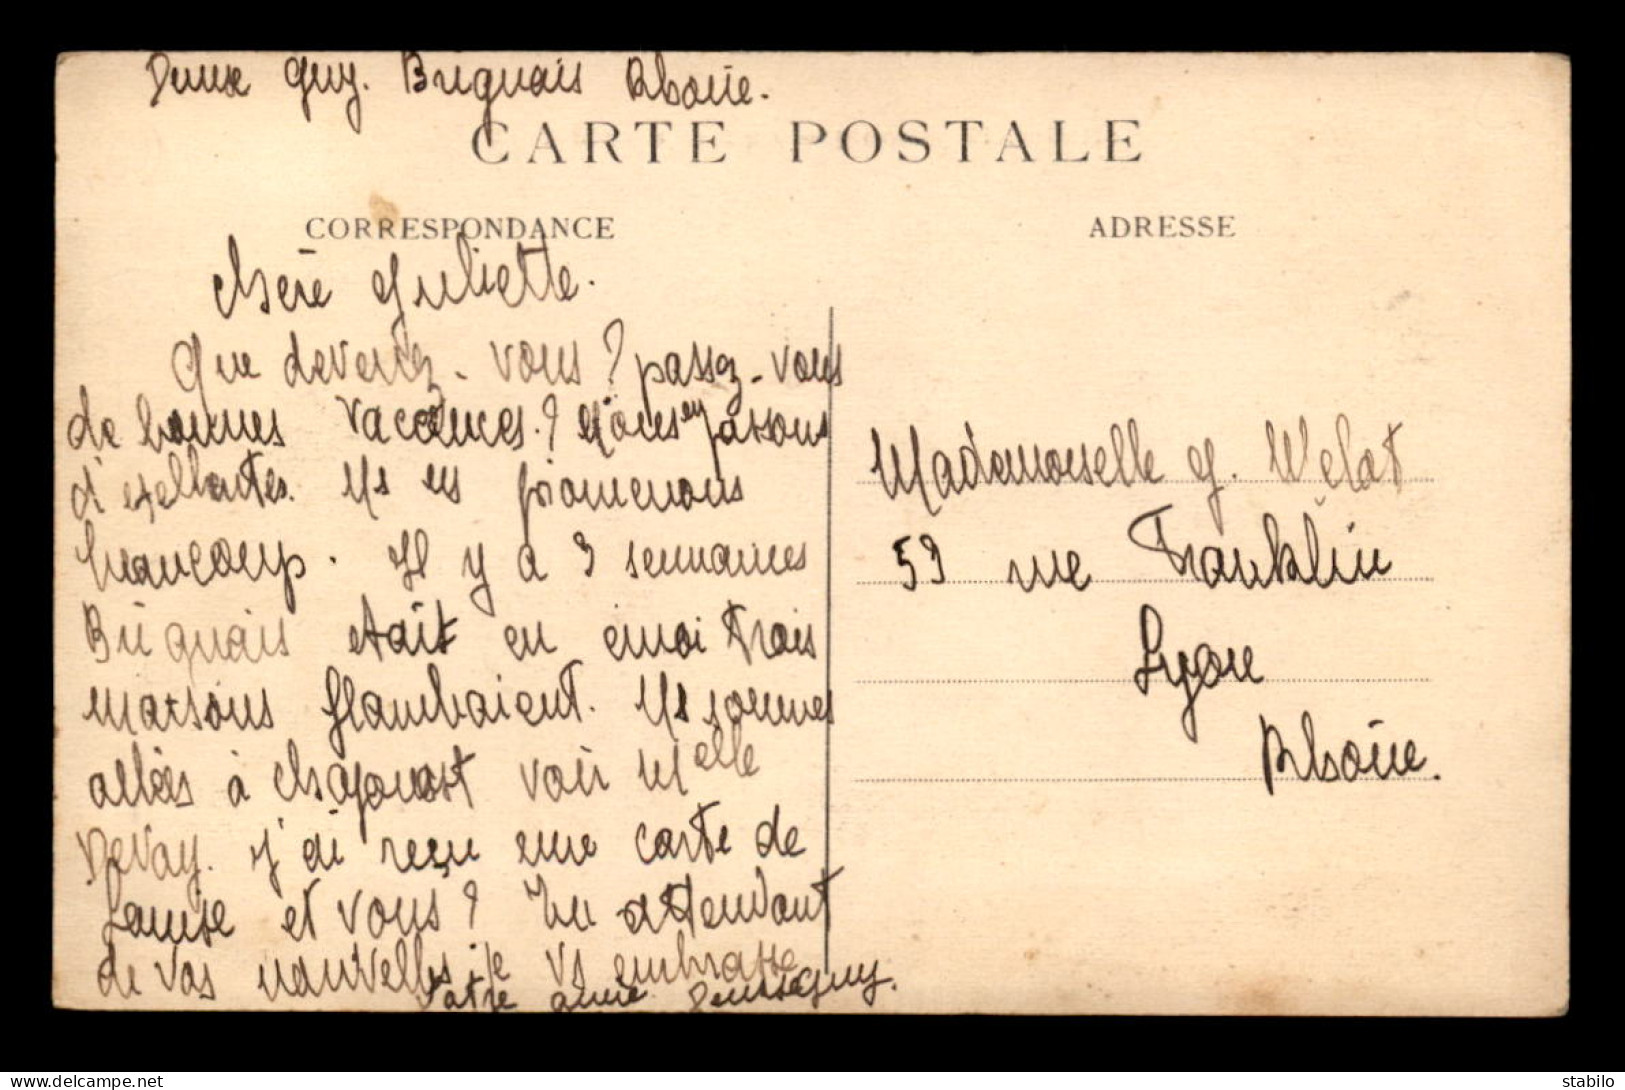 Guy. Briguais Rhône.
CARTE POSTALE
CORRESPONDANCE
ADRESSE
Chère Juliette.
Que devenez-vous? passez-vous
de bonnes vacances? Nous en passons
d'exellentes. Ns ns promenons
beaucoup. Il y a 3 semaines
Briguais était en émoi trois
maisons flambaient. Ns sommes
allées à Chaponost voir Melle
Devay. J'ai reçu une carte de
Louise et vous? En attendant
de vos nouvelles je vs embrasse
Votre amie Guy.
Mademoiselle J. Velat
59 rue Franklin
Lyon
Rhône.
delcampe.net
stabilo